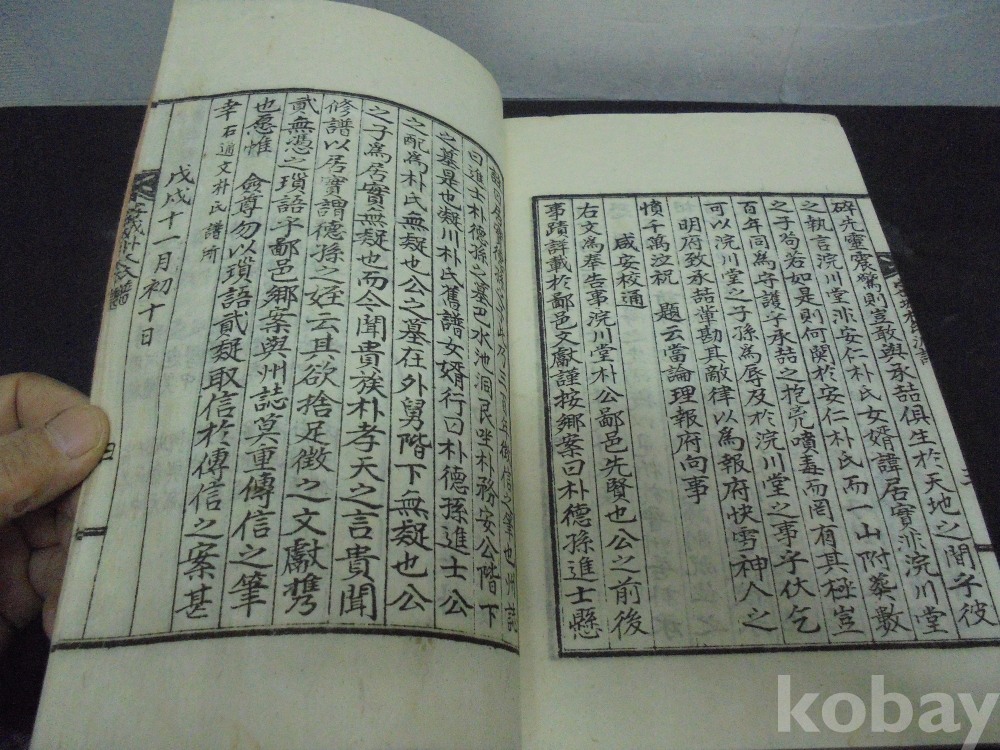 碎先靈震驚則豈敢與承喆俱生於天地之間乎彼
之執言浣川堂非安仁朴氏女婿諱居實非浣川堂
之子苟若如是則何關於安仁朴氏而一山附葬數
百年同為守護乎承喆之抱兇噴毒而罔有其極豈
可以浣川堂之子孫爲辱及於浣川堂之事乎伏乞
明府致承喆輩勘其敵律以爲報府快雪神人之
憤千萬泣祝　題云當論理報府向事
咸安校通
右文為奉告事浣川堂朴公鄙邑先賢也公之前後
事蹟詳載於鄙邑文獻謹按鄉案曰朴德孫進士懸
之筆也州誌
曰進士朴德孫之墓巴水池洞艮坐朴務安公階下
之墓是也凝川朴氏舊譜女婿行曰朴德孫進士公
之配爲朴氏無疑也公之墓在外舅階下無疑也公
之子爲居實無疑也而今聞貴族朴孝天之言貴聞
修譜以居實謂德孫之姪云其欲捨足徵之文獻携
貳無憑之瑣語乎鄙邑鄉案與州誌莫重傳信之筆
也愿惟　僉尊勿以瑣語貳疑取信於傳信之案甚
幸 石通文朴氏譜所
戊戌十一月初十日
kobay